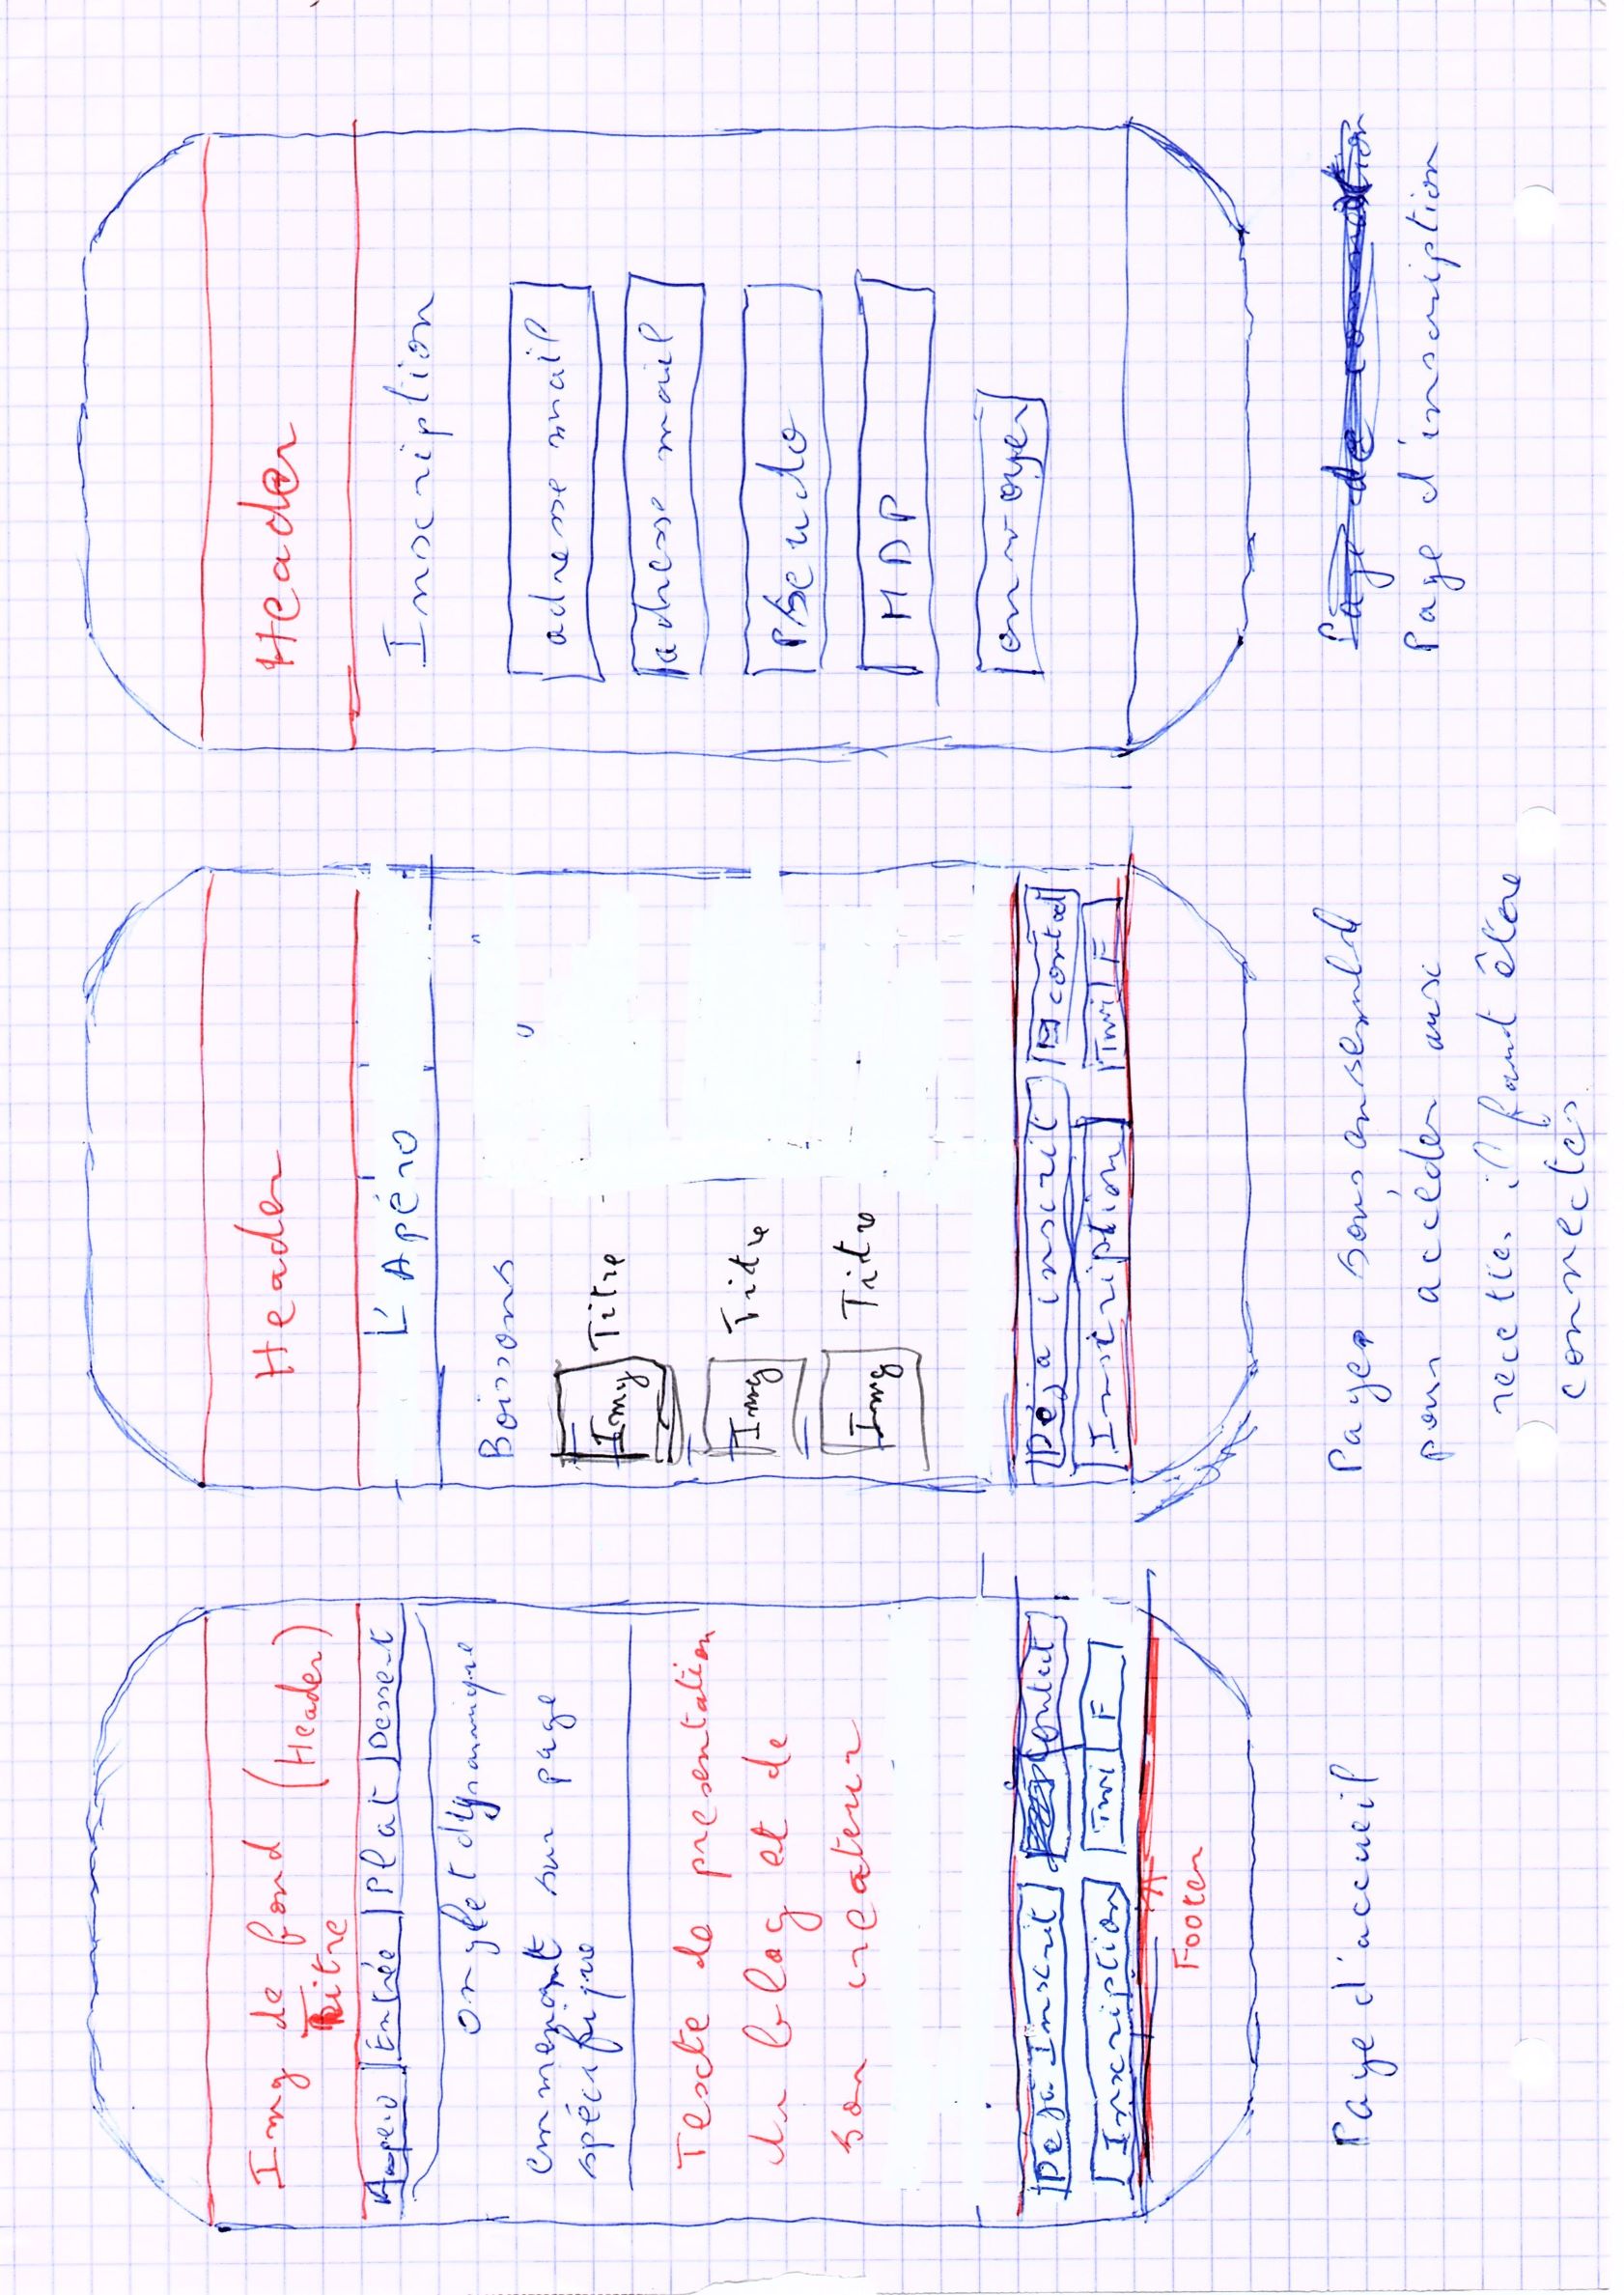 Img de fond (Header)
Titre
Apero Entrée Plat Dessert
onglet dynamique
emmenant sur page
spécifique
Texte de presentation
du blog et de
son createur
Déjà Inscrit Contact
Inscription Twi F
Footer
Page d'accueil
Header
L'Apéro
Boissons
Img Titre
Img Titre
Img Titre
Déja inscrit contact
Inscription Twi F
Pages sous ensemble
pour accéder aux
recettes il faut être
connectés
Header
Inscription
adresse mail
adresse mail
Pseudo
MDP
envoyer
Page de connection
Page d'inscription